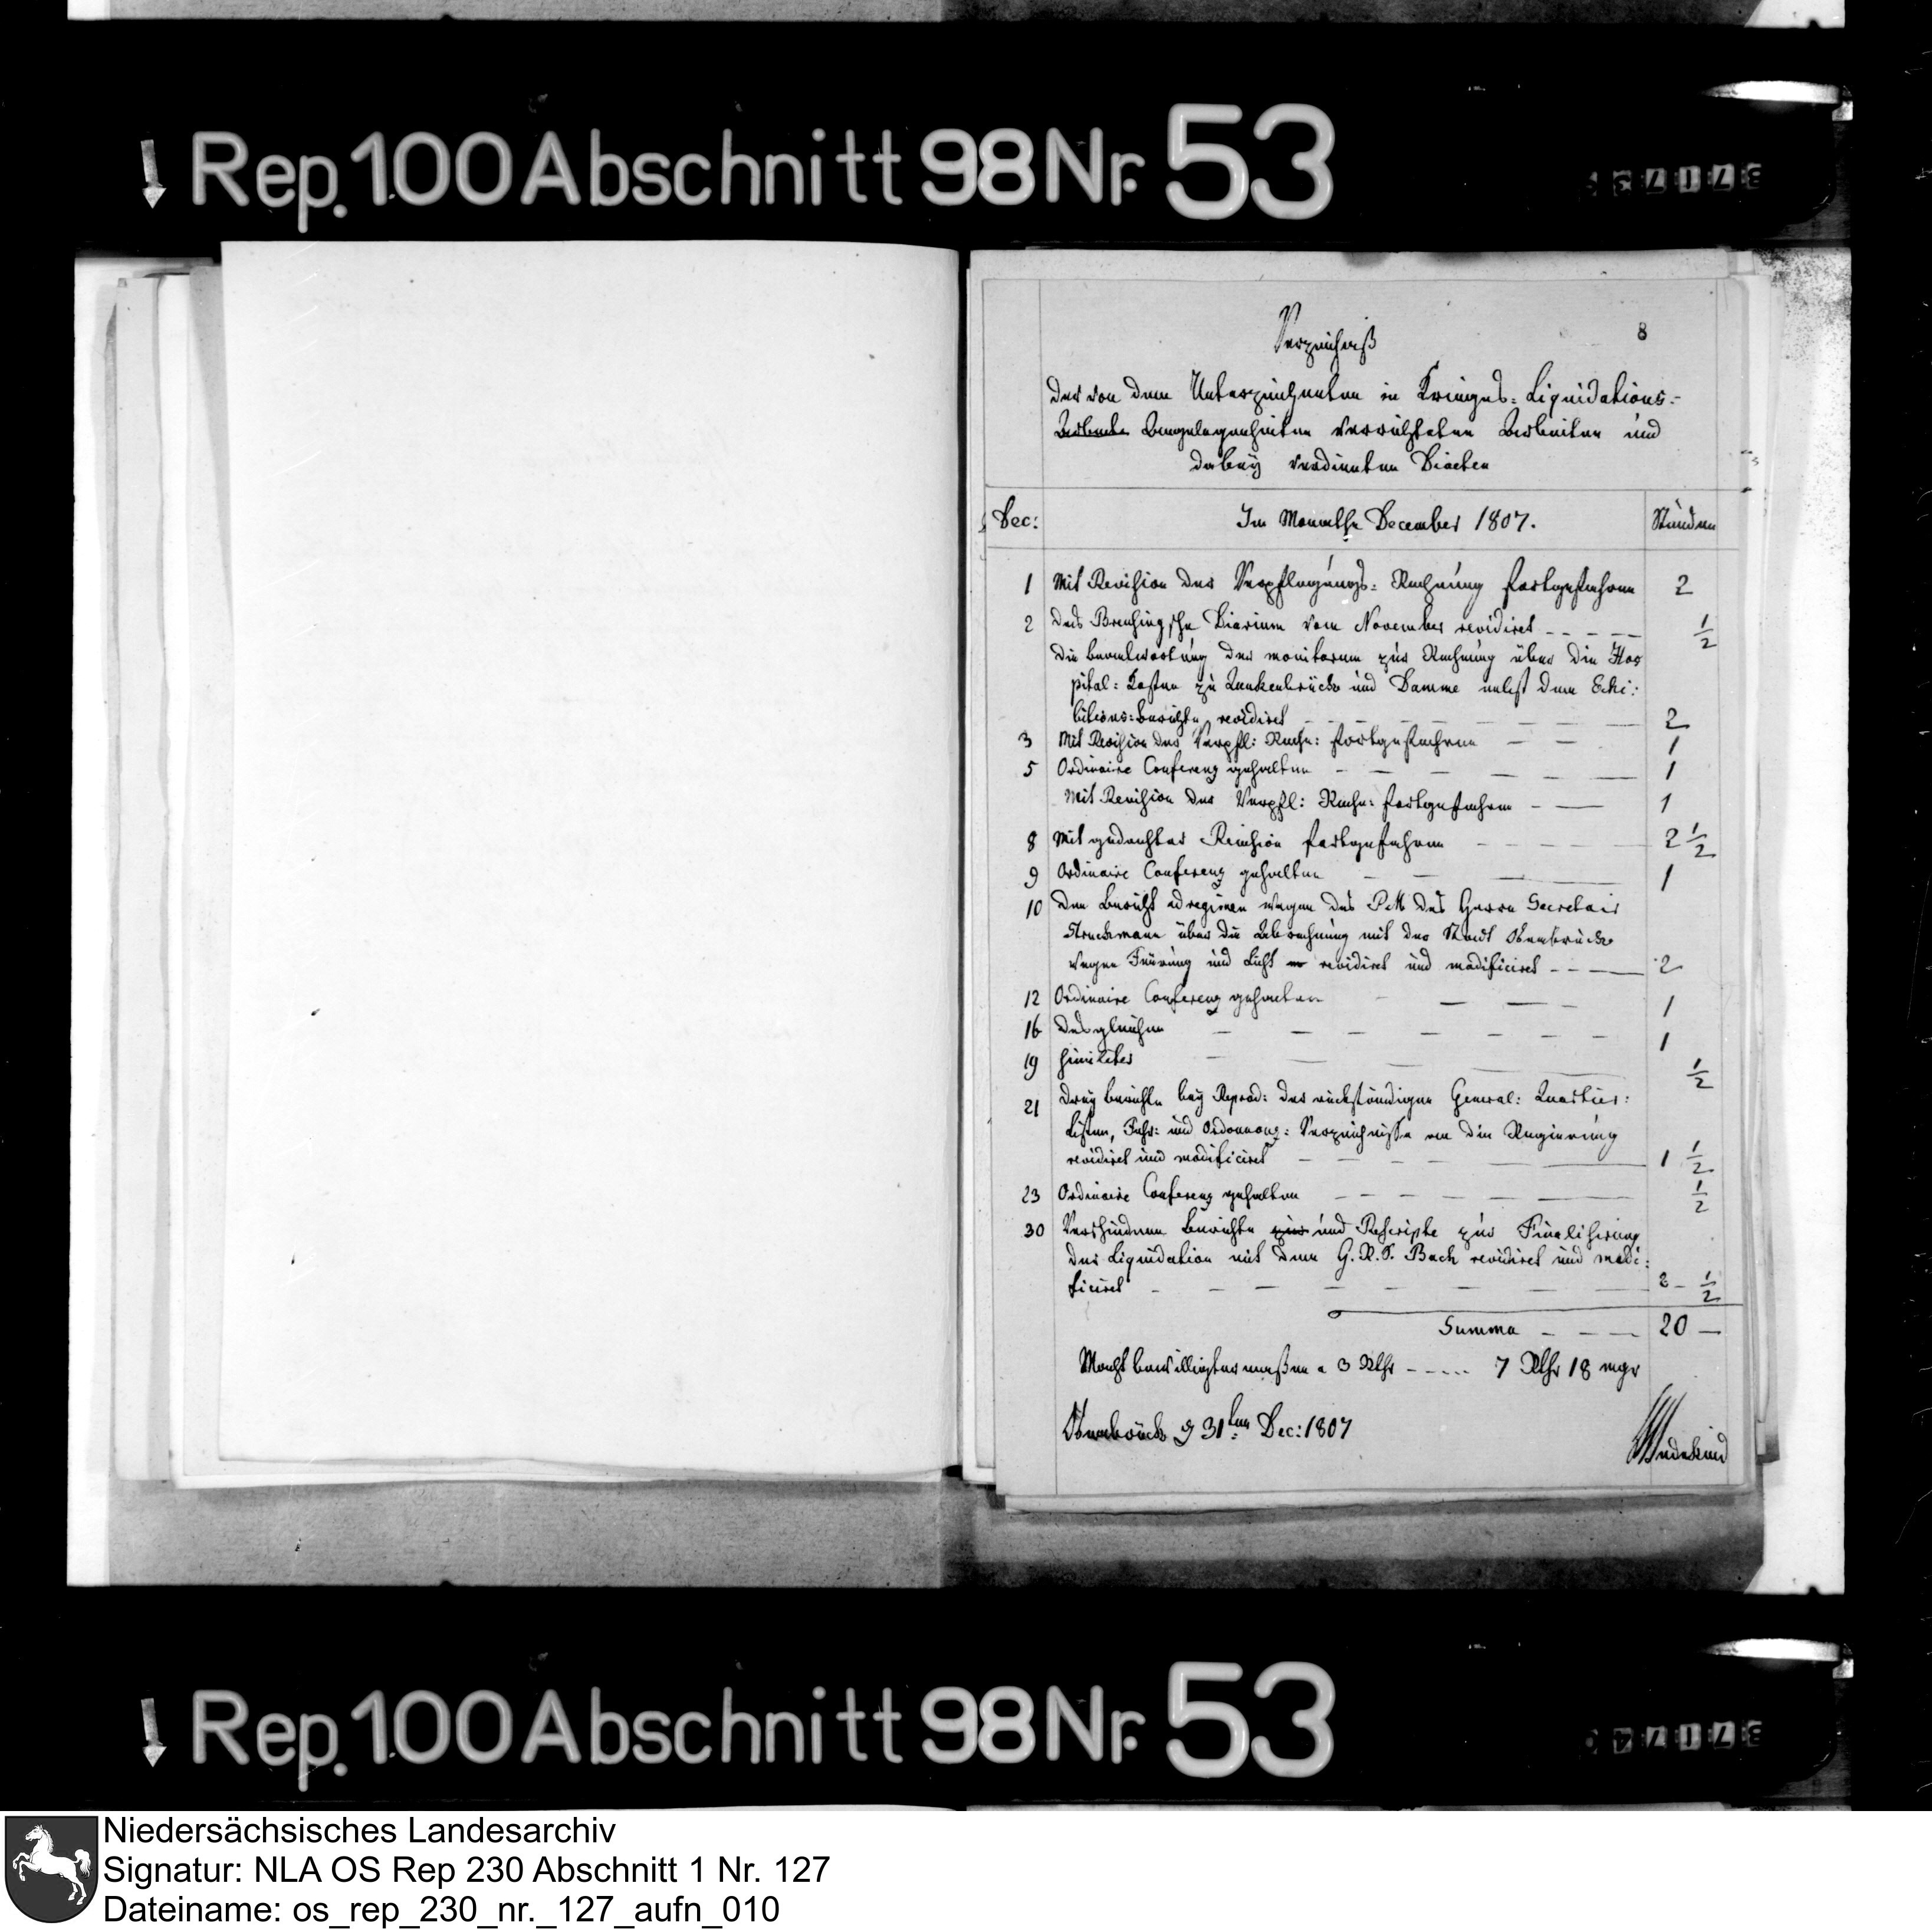 Rep. 100 Abschnitt 98 Nr. 53
8
Verzeichniß
der von dem Unterzeichneten in Krieges-Liquidations-
Angelegenheiten verrichteten Arbeiten und
dabey verdienten Diaeten
Dec: Im Monathe December 1807. Stunden
1 Mit Revision der Verpflegungs-Rechnung fortgefahren 2
2 das Breusingsche Diarium vom November revidiret - - - - - 1/2
die Beantwortung der monitorum zur Rechnung über die Hos
pital-Kosten zu Quakenbrück und Damme nebst dem Exhi:
bitions-berichte revidiret 2
3 Mit Revision der Verpfl: Rechn: fortgefahren 1
5 Ordinaire Conferenz gehalten 1
Mit Revision der Verpfl: Rechn: fortgefahren 1
8 Mit gedachter Revision fortgefahren 2 1/2
9 Ordinaire Conferenz gehalten 1
10 den Bericht ad regimen wegen des PM des Herrn Secretair
Struckmann über die Abrechnung mit der Stadt Osnabrück
wegen Feurung und Licht revidiret und modificiret 2
12 Ordinaire Conferenz gehalten 1
16 desgleichen 1
19 similiter 1/2
21 Drey berichte bey Reprod: der rückständigen General-Quartier:
Listen, Fuhr- und Ordonnanz-Verzeichnisse an die Regierung
revidiret und modificiret 1 1/2
23 Ordinaire Conferenz gehalten 1/2
30 Verschiedene Berichte und Rescripte zur Finalisirung
der Liquidation mit dem G. R. S. Bach revidiret und modi:
ficiret 2 - 1/2
Summa - - - 20 -
Macht bewilligtermaßen a 3 Rthr - - - - - 7 Rthr 18 mgr
Osnabrück d 31ten Dec: 1807
Wedekind
Rep. 100 Abschnitt 98 Nr. 53
Niedersächsisches Landesarchiv
Signatur: NLA OS Rep 230 Abschnitt 1 Nr. 127
Dateiname: os_rep_230_nr._127_aufn_010